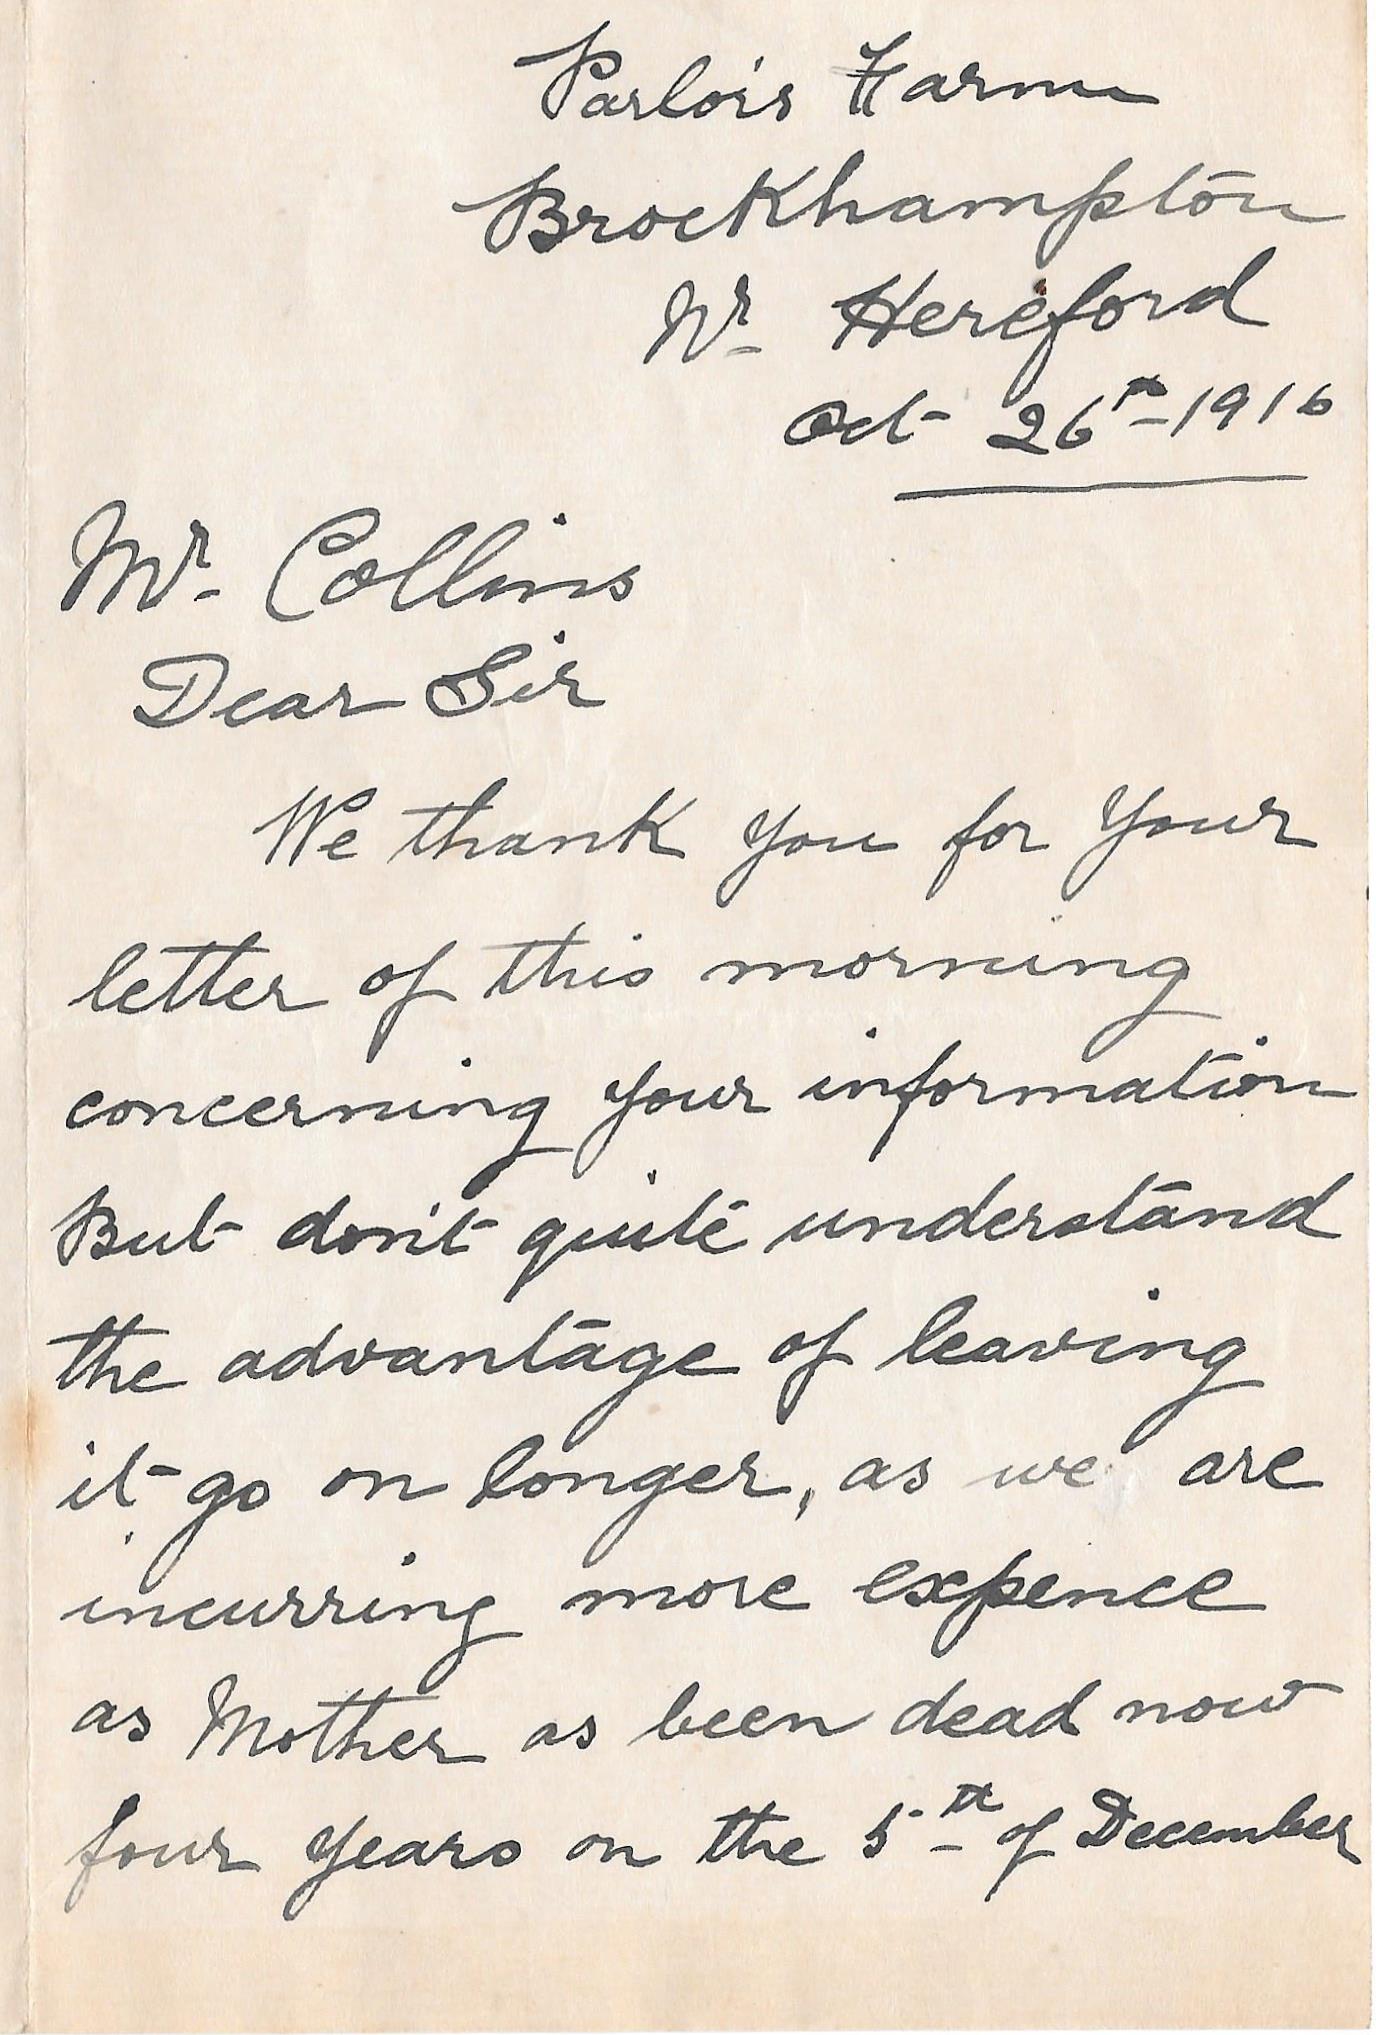 Parlois Farm
Brockhampton
Nr Hereford
Oct 26th-1916
Mr Collins
Dear Sir
We thank you for your
letter of this morning
concerning your information
But don't quite understand
the advantage of leaving
it go on longer, as we are
incurring more expence
as Mother as been dead now
four years on the 5th of December